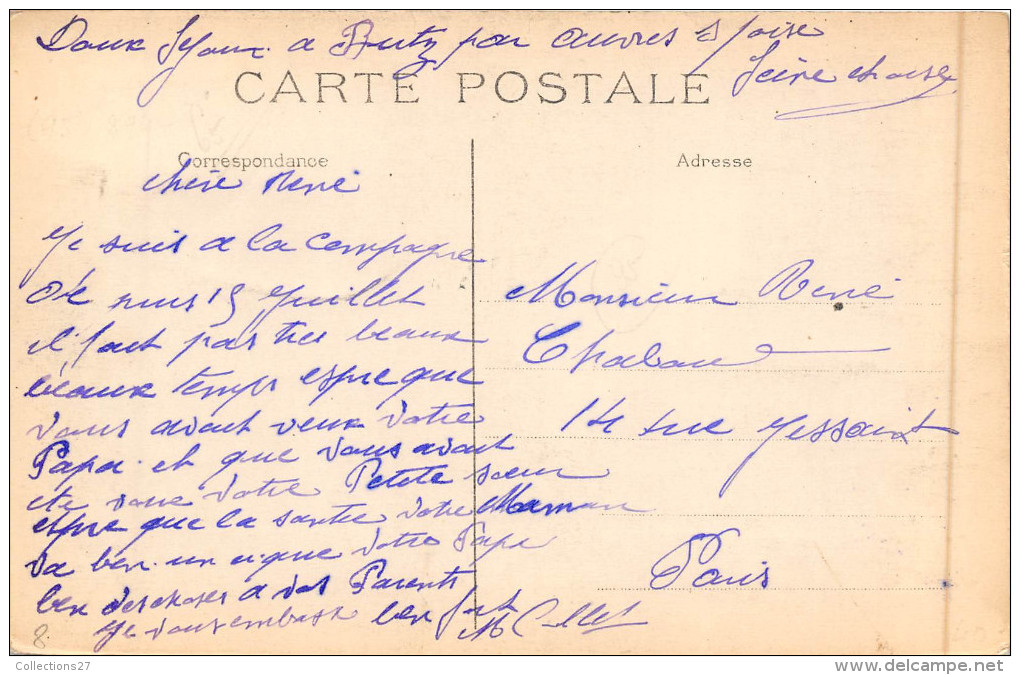 Doux Séjour a Butry par Auvers S Joise
Seine et oise
CARTE POSTALE
Correspondance
Adresse
chère René
Je suis a la Compagne
15 Juillet
il fait pas tres beaux
beaux temps espre que
vous avait veux votre
Papa et que vous avait
éte votre Petite sœur
espre que la santée votre Maman
va ben votre Papa
ben des choses a vos Parents
Je vous embrasse ben fort
M Collet
Monsieur René
Chabau
14 rue Jessaint
Paris
8.
Collections27
www.delcampe.net